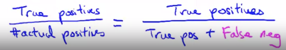 True positives = True positives
#actual positives True pos + False neg